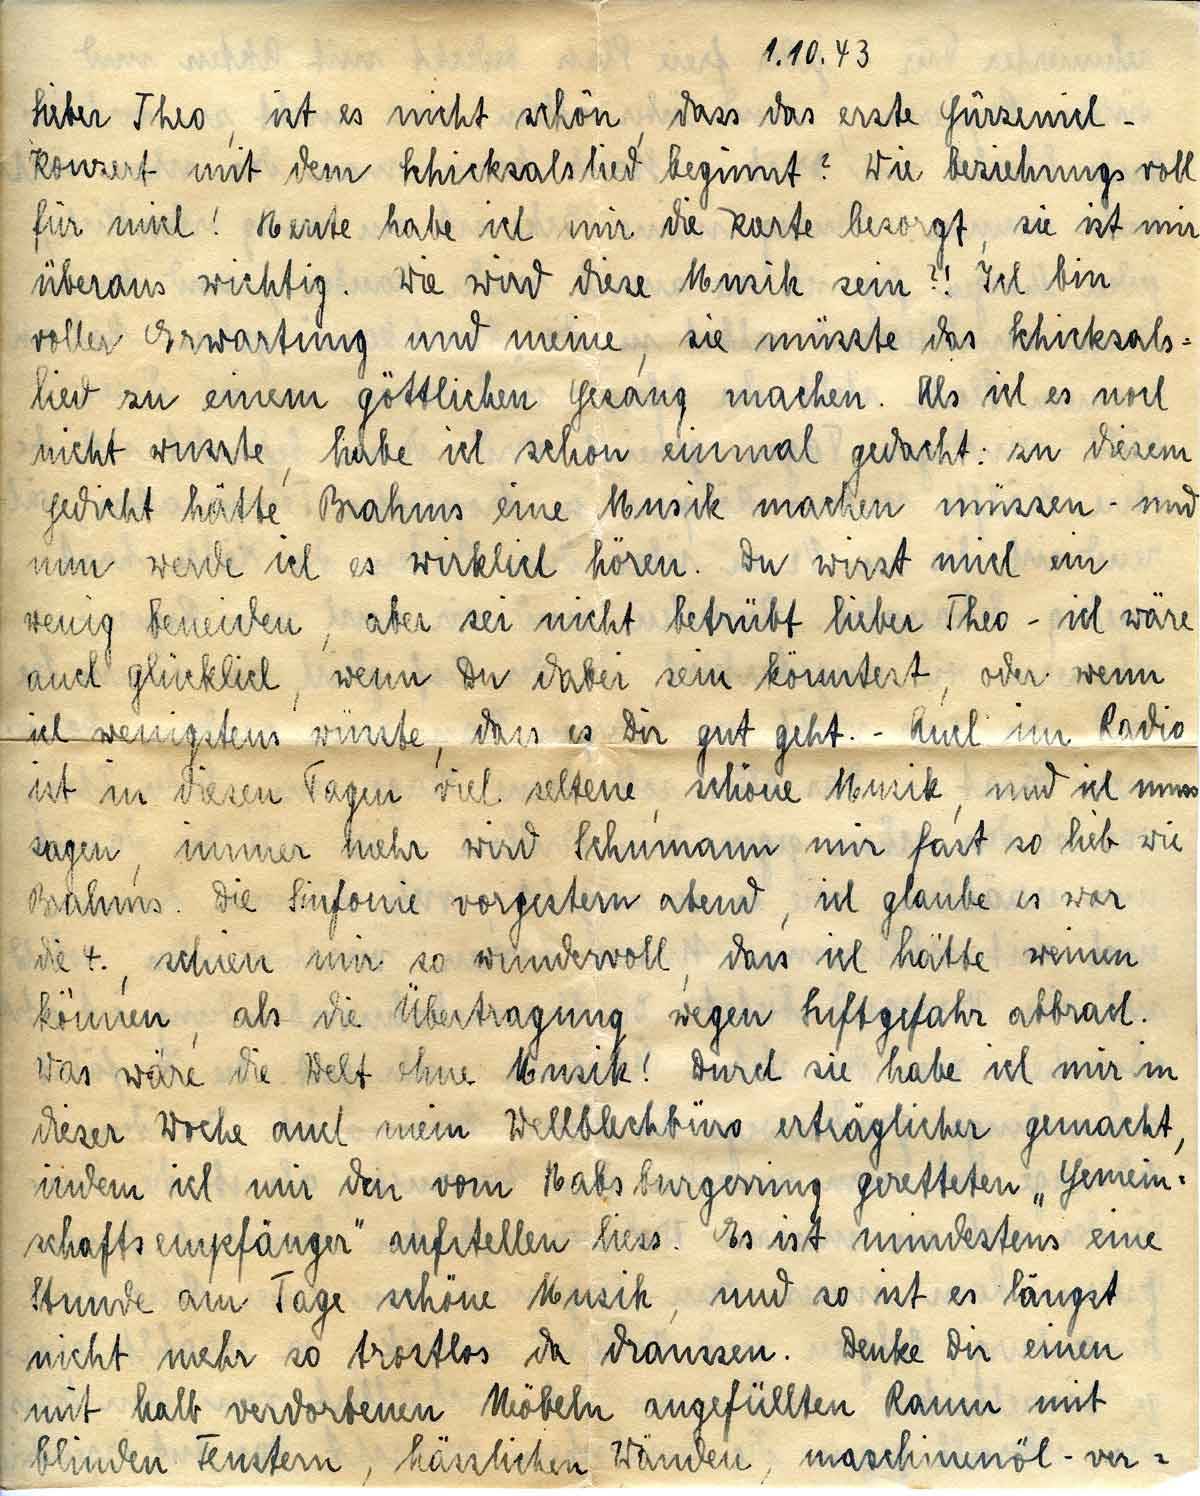 1.10.43
Lieber Theo, ist es nicht schön, dass das erste Gürzenich-
konzert mit dem Schicksalslied beginnt? Wie beziehungsvoll
für mich! Heute habe ich mir die Karte besorgt, sie ist mir
überaus wichtig. Wie wird diese Musik sein?! Ich bin
voller Erwartung und meine, sie müsste das Schicksals=
lied zu einem göttlichen Gesang machen. Als ich es noch
nicht wusste, habe ich schon einmal gedacht: zu diesem
Gedicht hätte Brahms eine Musik machen müssen - und
nun werde ich es wirklich hören. Du wirst mich ein
wenig beneiden, aber sei nicht betrübt lieber Theo - ich wäre
auch glücklich, wenn Du dabei sein könntest, oder wenn
ich wenigstens wüsste, dass es Dir gut geht. - Auch im Radio
ist in diesen Tagen viel seltene, schöne Musik, und ich muss
sagen, immer mehr wird Schumann mir fast so lieb wie
Brahms. Die Sinfonie vorgestern abend, ich glaube es war
die 4., schien mir so wundervoll, dass ich hätte weinen
können, als die Übertragung wegen Luftgefahr abbrach.
Was wäre die Welt ohne Musik! Durch sie habe ich mir in
dieser Woche auch mein Wellblechbüro erträglicher gemacht,
indem ich mir den vom Habsburgerring geretteten „Gemein=
schaftsempfänger" aufstellen liess. Es ist mindestens eine
Stunde am Tage schöne Musik, und so ist es längst
nicht mehr so trostlos da draussen. Denke Dir einen
mit halb verdorbenen Möbeln angefüllten Raum mit
blinden Fenstern, hässlichen Wänden, maschinenöl-ver=